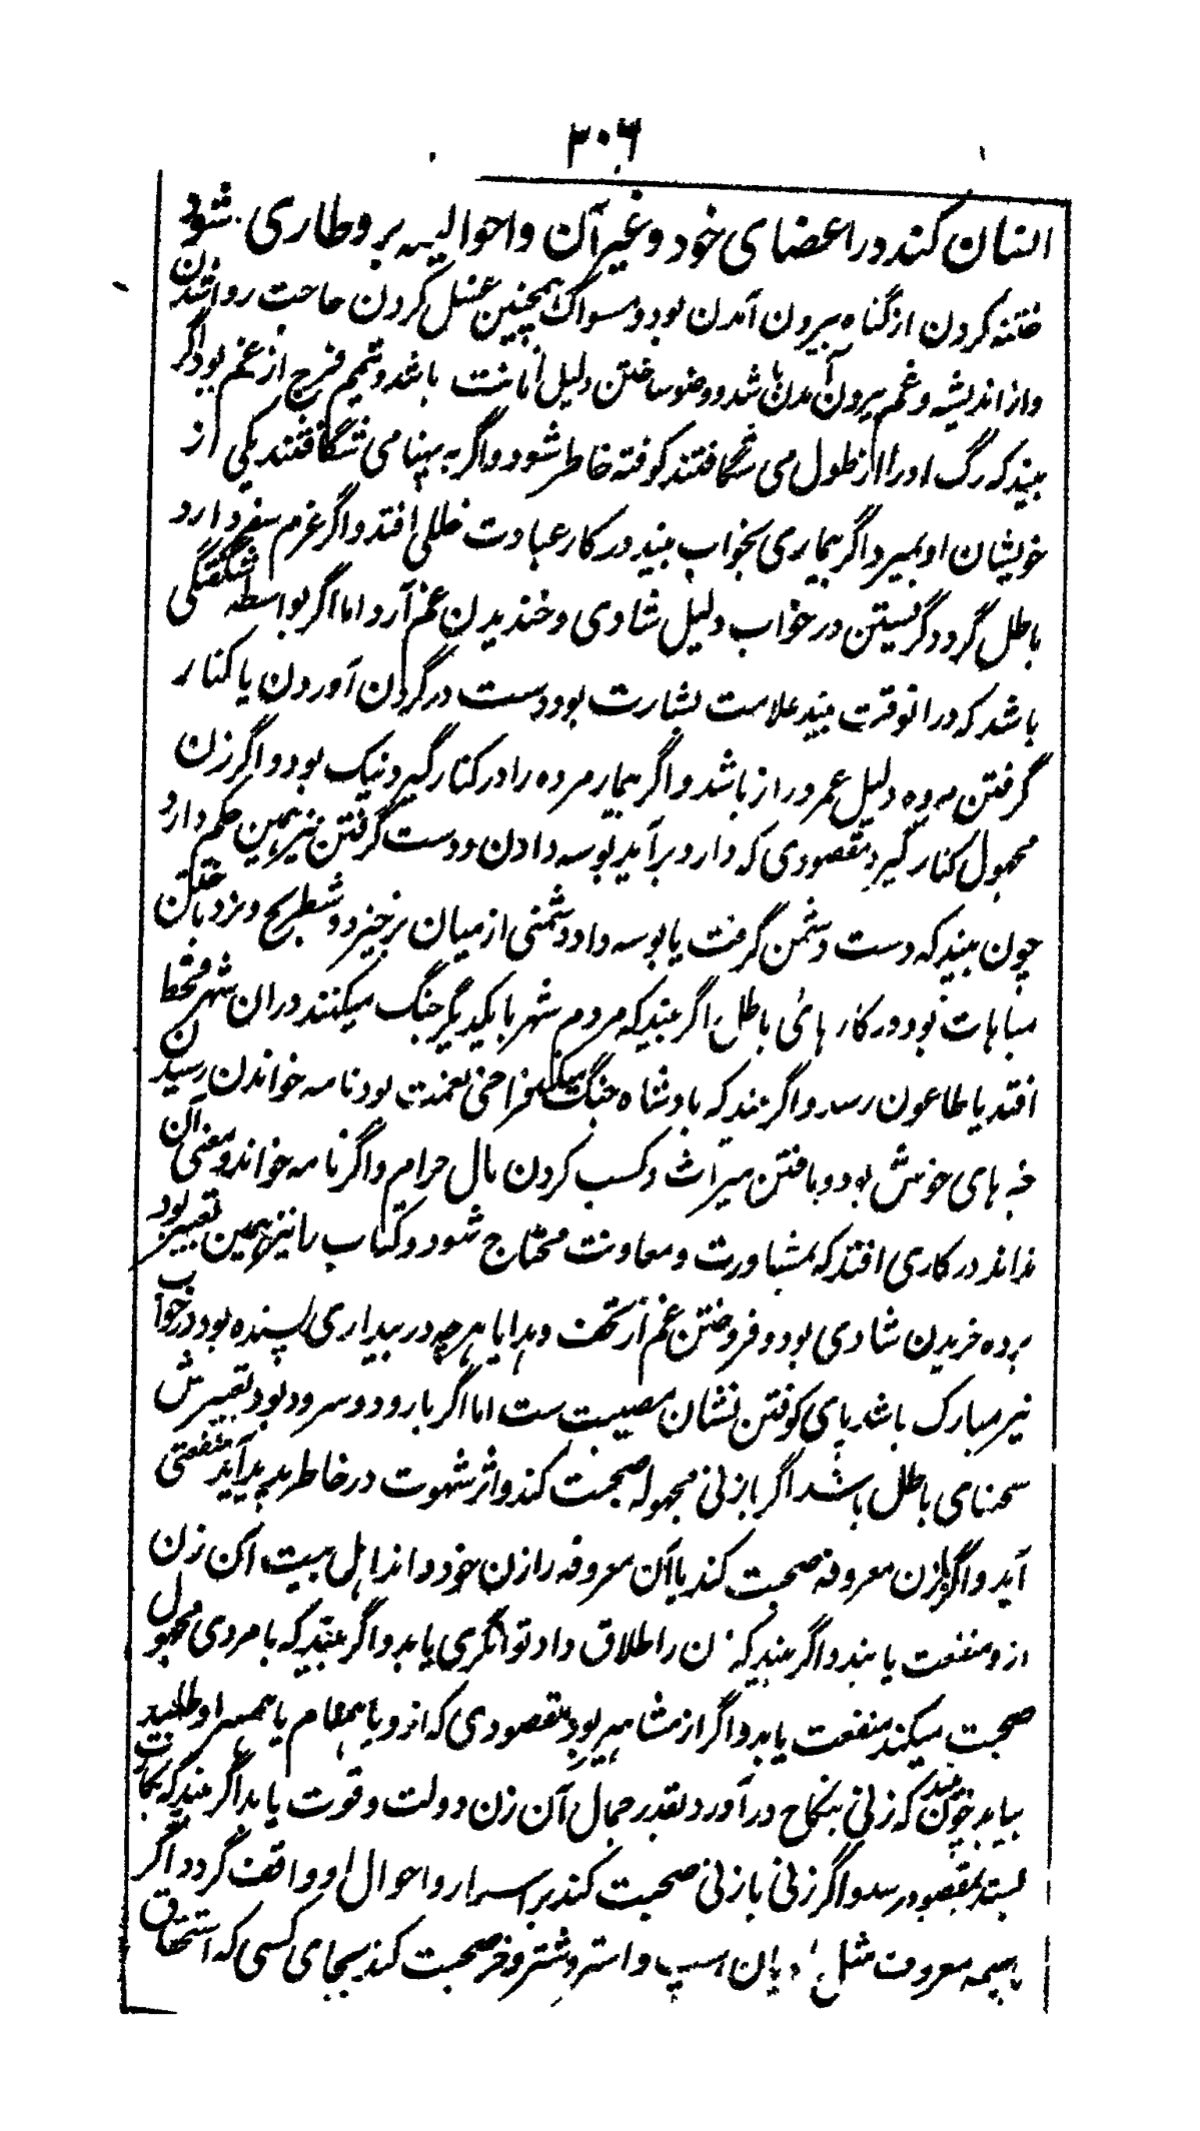 ۳۰۶
انسان کند در اعضای خود و غیر آن و احوالیه برو طاری شود
ختنه کردن از گناه بیرون آمدن بود و مسواک همچنین غسل کردن حاجت روا شدن
و از اندیشه و غم بیرون آمدن باشد و وضو ساختن دلیل امانت باشد و تیمم فرج از غم بود اگر
بیند که رگ او را از طول می شگافتند کوفته خاطر شود و اگر به پهنا می شگافتند یکی از
خویشان او بمیرد اگر بیماری بخواب بیند در کار عبادت خللی افتد و اگر عزم سفر دارد
باطل گردد گریستن در خواب دلیل شادی و خندیدن غم آرد اما اگر بواسطه شگفتگی
باشد که در انوقت بیند علامت بشارت بود دست در گردن آوردن یا کنار
گرفتن مرده دلیل عمر دراز باشد و اگر بیمار مرده را در کنار گیرد نیک بود و اگر زن
مجهول کنار گیرد مقصودی که دارد برآید بوسه دادن و دست گرفتن نیز همین حکم دارد
چون بیند که دست دشمن گرفت یا بوسه داد دشمنی از میان برخیزد و شطرنج و نرد باختن
مباهات بود در کار هائی باطل اگر بیند که مردم شهر با یکدیگر جنگ میکنند دران شهر قحط
افتد یا طاعون رسد و اگر بیند که بادشاه جنگ میکند فراخی نعمت بود نامه خواندن رسیدن
خبر های خوش بود و یافتن میراث و کسب کردن مال حرام و اگر نامه خواند و معنی آن
نداند در کاری افتد که بمشاورت و معاونت محتاج شود و کتاب را نیز همین تعبیر بود
برده خریدن شادی بود و فروختن غم از تحف و هدایا هر چه در بیداری پسندیده بود در خواب
نیز مبارک باشد پای کوفتن نشان مصیبت ست اما اگر با رود و سرود بود تعبیرش
سخنای باطل باشد اگر با زنی مجهوله صحبت کند و اثر شهوت در خاطر پدید آید منفعتی
آید و اگر با زن معروفه صحبت کند یا آن معروفه را زن خود داند اهل بیت آن زن
ازو منفعت یابند و اگر بیند که زن را طلاق داد توانگری یابد و اگر بیند که با مردی مجهول
صحبت میکند منفعت یابد و اگر از مشاهیر بود مقصودی که ازو یا همنام یا همسر او طلبید
بیابد چون بیند که زنی بنکاح در آورد بقدر جمال آن زن دولت و قوت یابد اگر بیند که بکارت
بستد بمقصود رسد و اگر زنی با زنی صحبت کند بر اسرار و احوال او واقف گردد اگر
بهیمه معروف مثل مادیان اسپ و استر و شتر و خر صحبت کند بجای کسی که استحقاق